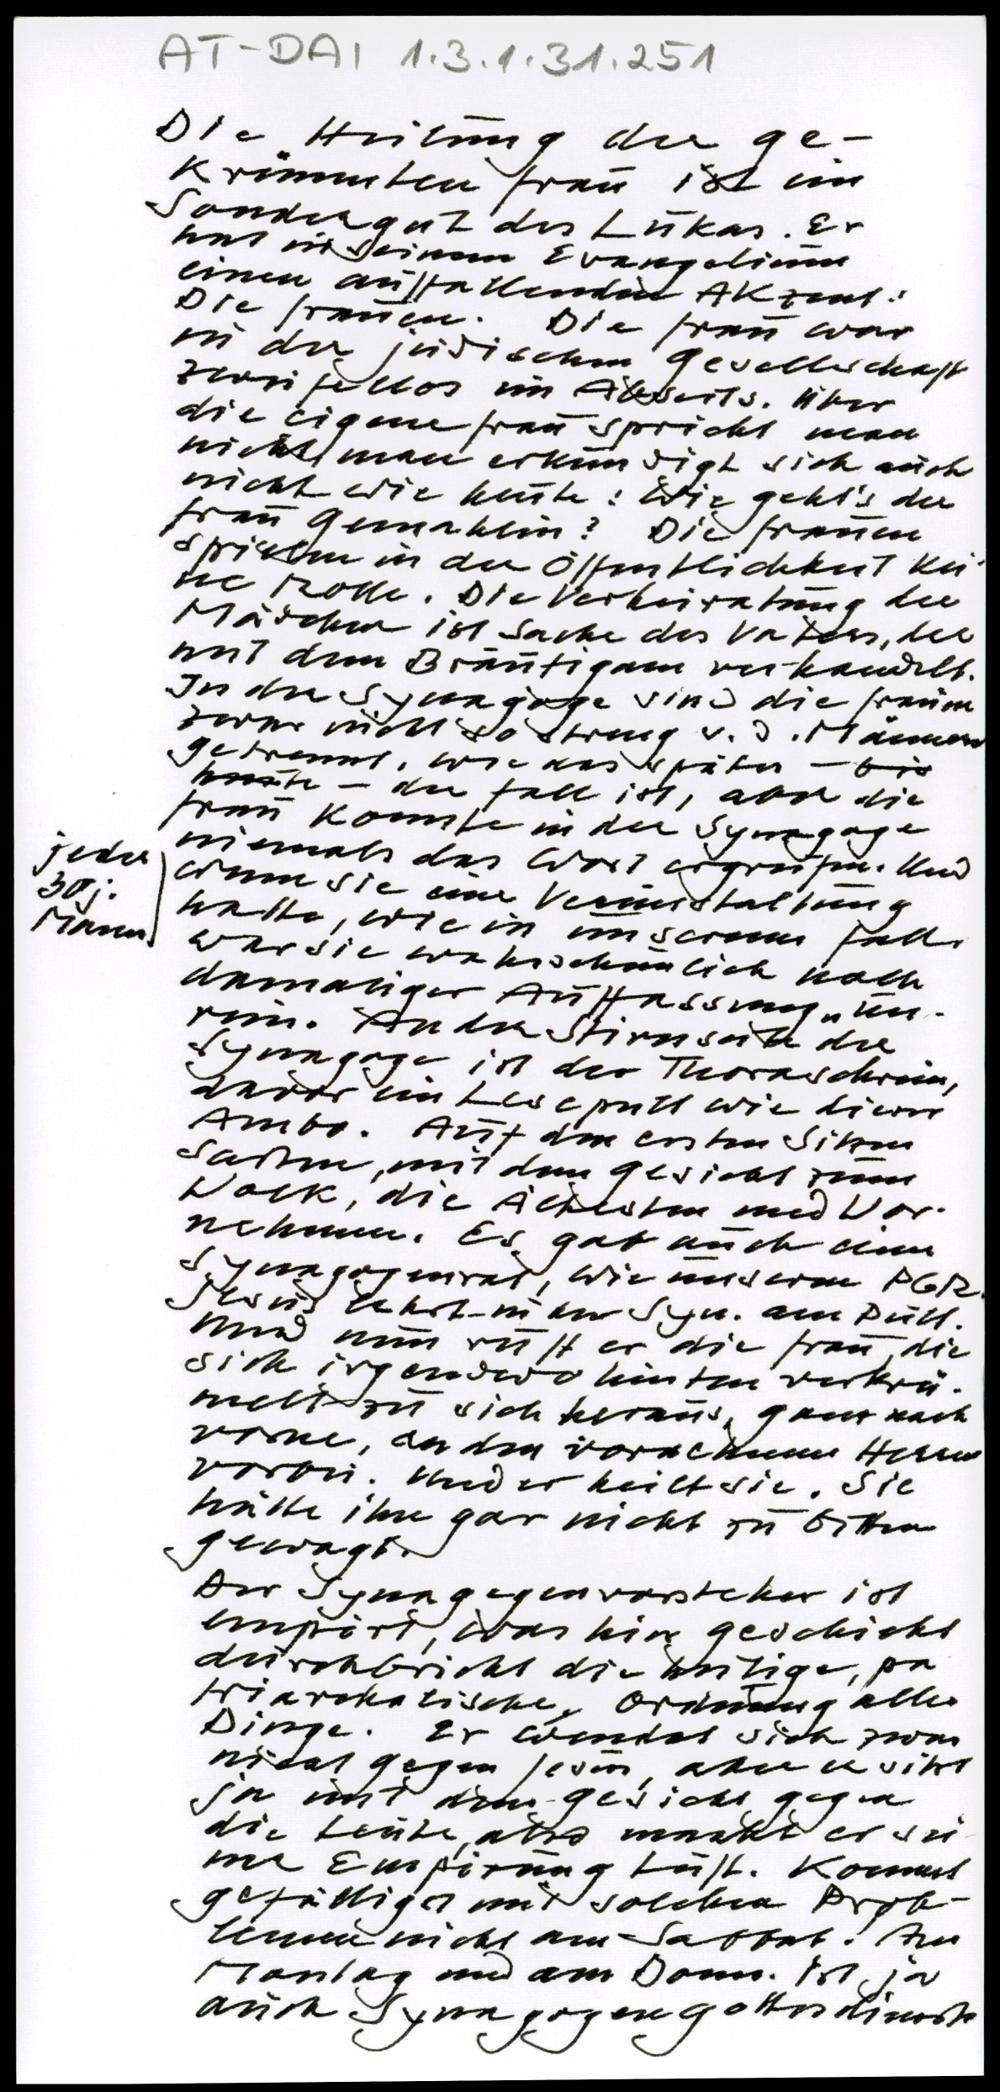 AT-DAI 1.3.1.31.251
Die Heilung der ge-
krümmten Frau ist ein
Sondergut des Lukas. Er
hat in seinem Evangelium
einen auffallenden Akzent:
Die Frauen. Die Frau war
in der jüdischen Gesellschaft
zweifellos im Abseits. Über
die eigene Frau spricht man
nicht, man erkundigt sich auch
nicht wie heute: Wie geht's der
Frau Gemahlin? Die Frauen
spielen in der Öffentlichkeit kei-
ne Rolle. Die Verheiratung der
Mädchen ist Sache des Vaters, der
mit dem Bräutigam verhandelt.
In der Synagoge sind die Frauen
zwar nicht so streng v. d. Männern
getrennt, wie das später – bis
heute – der Fall ist, aber die
Frau konnte in der Synagoge
niemals das Wort ergreifen. Und
jeder
30j.
Mann
wenn sie eine Verunstaltung
hatte, wie in unserem Fall
war sie wahrscheinlich nach
damaliger Auffassung „un-
rein. An der Stirnseite der
Synagoge ist der Thoraschrein,
davor ein Lesepult wie dieser
Ambo. Auf den ersten Sitzen
saßen, mit dem Gesicht zum
Volk, die Ältesten und Vor-
nehmen. Es gab auch einen
Synagogenrat, wie unseren PGR.
Jesus lehrt in der Syn. am Pult.
Und nun ruft er die Frau, die
sich irgendwo hinten verkrü-
melt zu sich heraus, ganz nach
vorne, an den vornehmen Herren
vorbei. Und er heilt sie. Sie
hätte ihn gar nicht zu bitten
gewagt.
Der Synagogenvorsteher ist
empört, was hier geschieht
durchbricht die heilige, pa
triarchalische, Ordnung aller
Dinge. Er wendet sich zwar
nicht gegen Jesus, aber er sitzt
ja mit dem Gesicht gegen
die Leute, also macht er sei-
ner Empörung Luft. Kommt
gefälligst mit solchen Prob-
lemen nicht am Sabbat. Am
Montag und am Donn. ist ja
auch Synagogengottesdienst